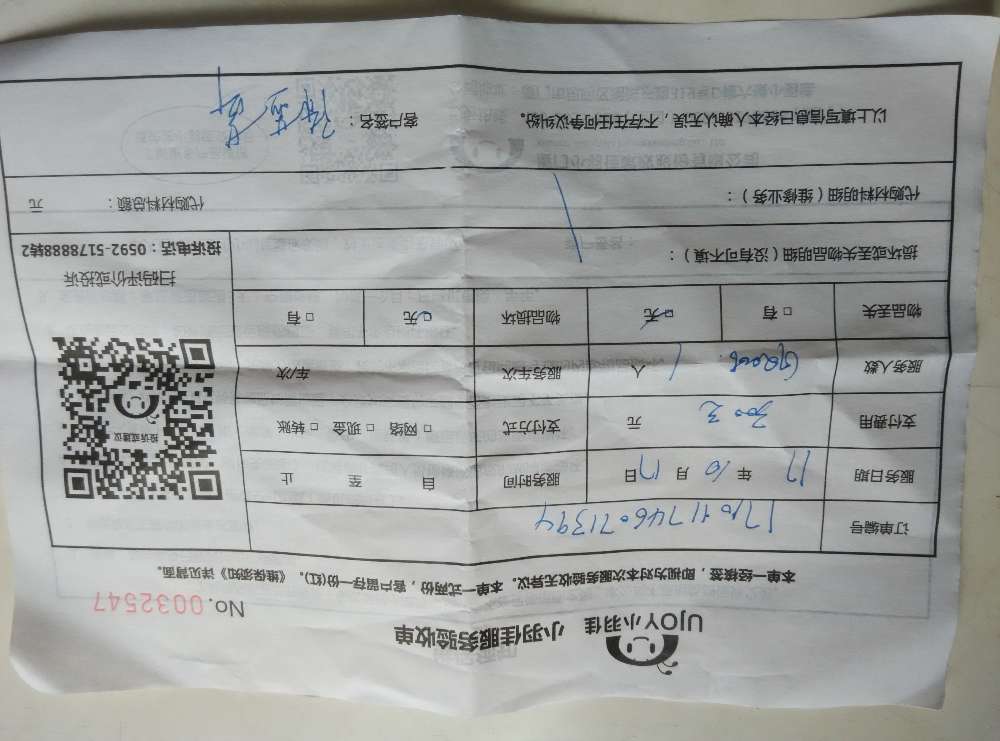 UJOY小羽佳 小羽佳服务验收单
No.0032547
本单一经核签，即视为对本次服务验收无异议。本单一式两份，客户留存一份(红)。《维保须知》详见背面。
订单编号
服务日期 17 年 10 月 17 日 服务时间 自 至 止
支付费用 300元 元 支付方式 □网络 □现金 □转账
服务人数 1 人 服务车次 车/次
物品丢失 □有 □无 物品损坏 □无 □有
投诉或建议
扫码评价或投诉
投诉电话：0592-5178888转2
损坏或丢失物品明细（没有可不填）：
代购材料明细（维修业务）： 代购材料总额： 元
以上填写信息已经本人确认无误，不存在任何争议纠纷。 客户签名：